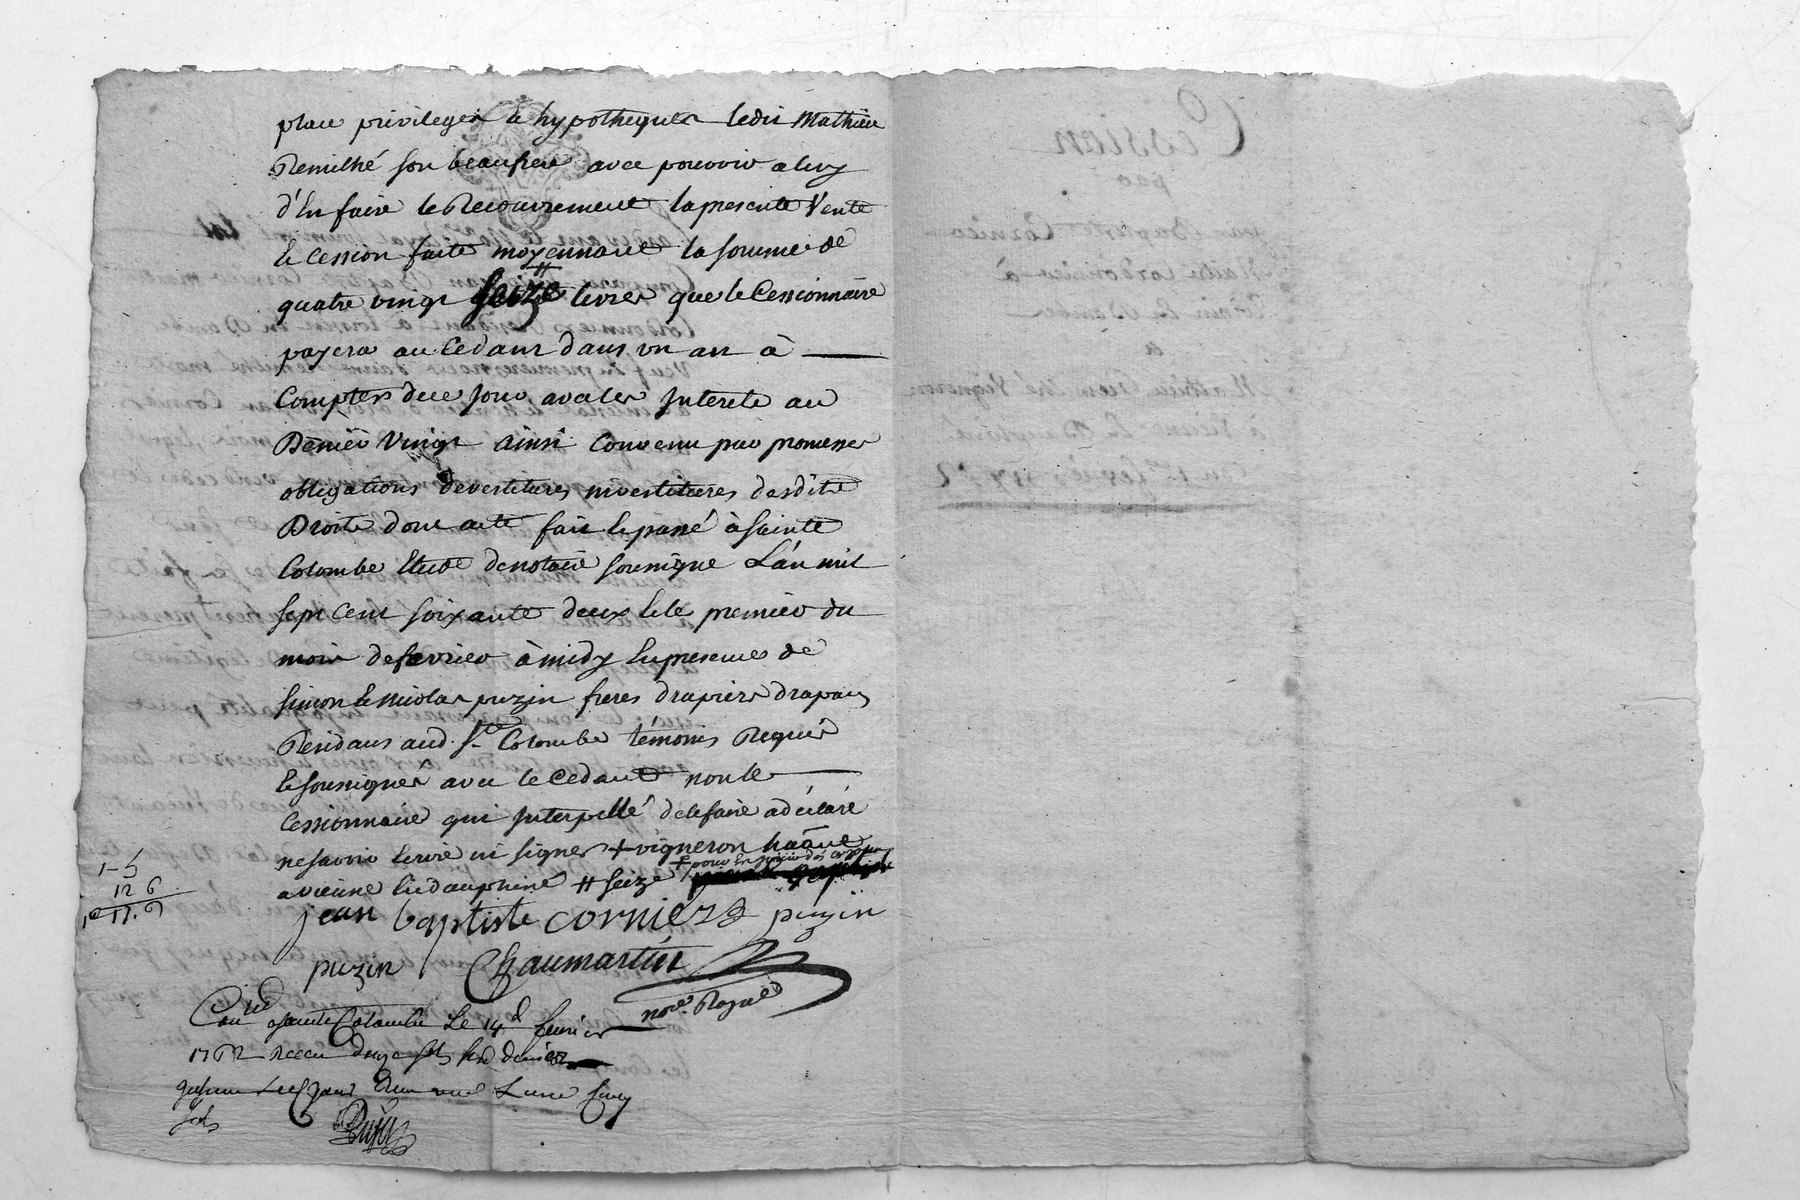 place privileges & hypotheques ledit Mathieu
Remilhé son beaufrere avec pouvoir a luy
d'En faire le Recouvrement la presente Vente
& Cession faite moyennant la somme de
quatre vingt seize livres que le Cessionnaire
payera au Cedant dans un an à
Compter de ce jour avec les Interets au
Denier Vingt ainsi convenu par promesses
obligations devestitures investitures desdits
Droits dont acte fait & passé à Sainte
Colombe Etude de notaire soussigné L'an mil
sept cent soixante deux & le premier du
mois de fevrier à midy En presence de
Simon & Nicolas puzin freres drapiers drapans
Residans aud. Ste Colombe témoins Requis
& soussignés avec le Cedant non le
Cessionnaire qui Interpellé de le faire a déclaré
ne savoir Ecrire ni signer + vigneron habitant
a vienne En dauphiné # seize
jean baptiste corniere puzin
puzin Chaumartin
nore. Royal
Conlé a sainte Colombe Le 14 fevrier
1762 Receu douze sols six deniers
sols
1-5
12 6
17.6
Cession
par
Jean Baptiste Cornier
à
a
Mathieu Remilhé Vigneron
Du 1er fevrier 1762